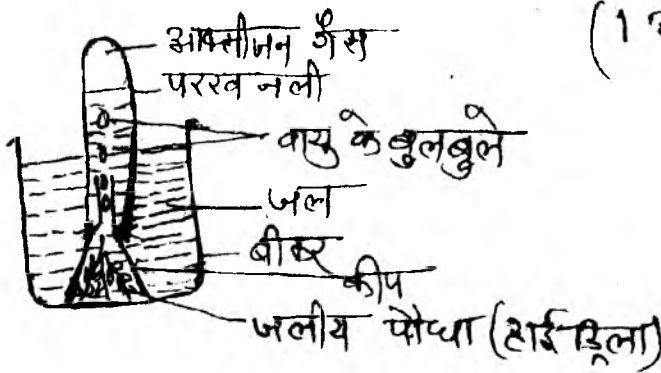 (1
आक्सीजन गैस
परख नली
वायु के बुलबुले
जल
बीकर
कीप
जलीय पौधा (हाईड्रिला)